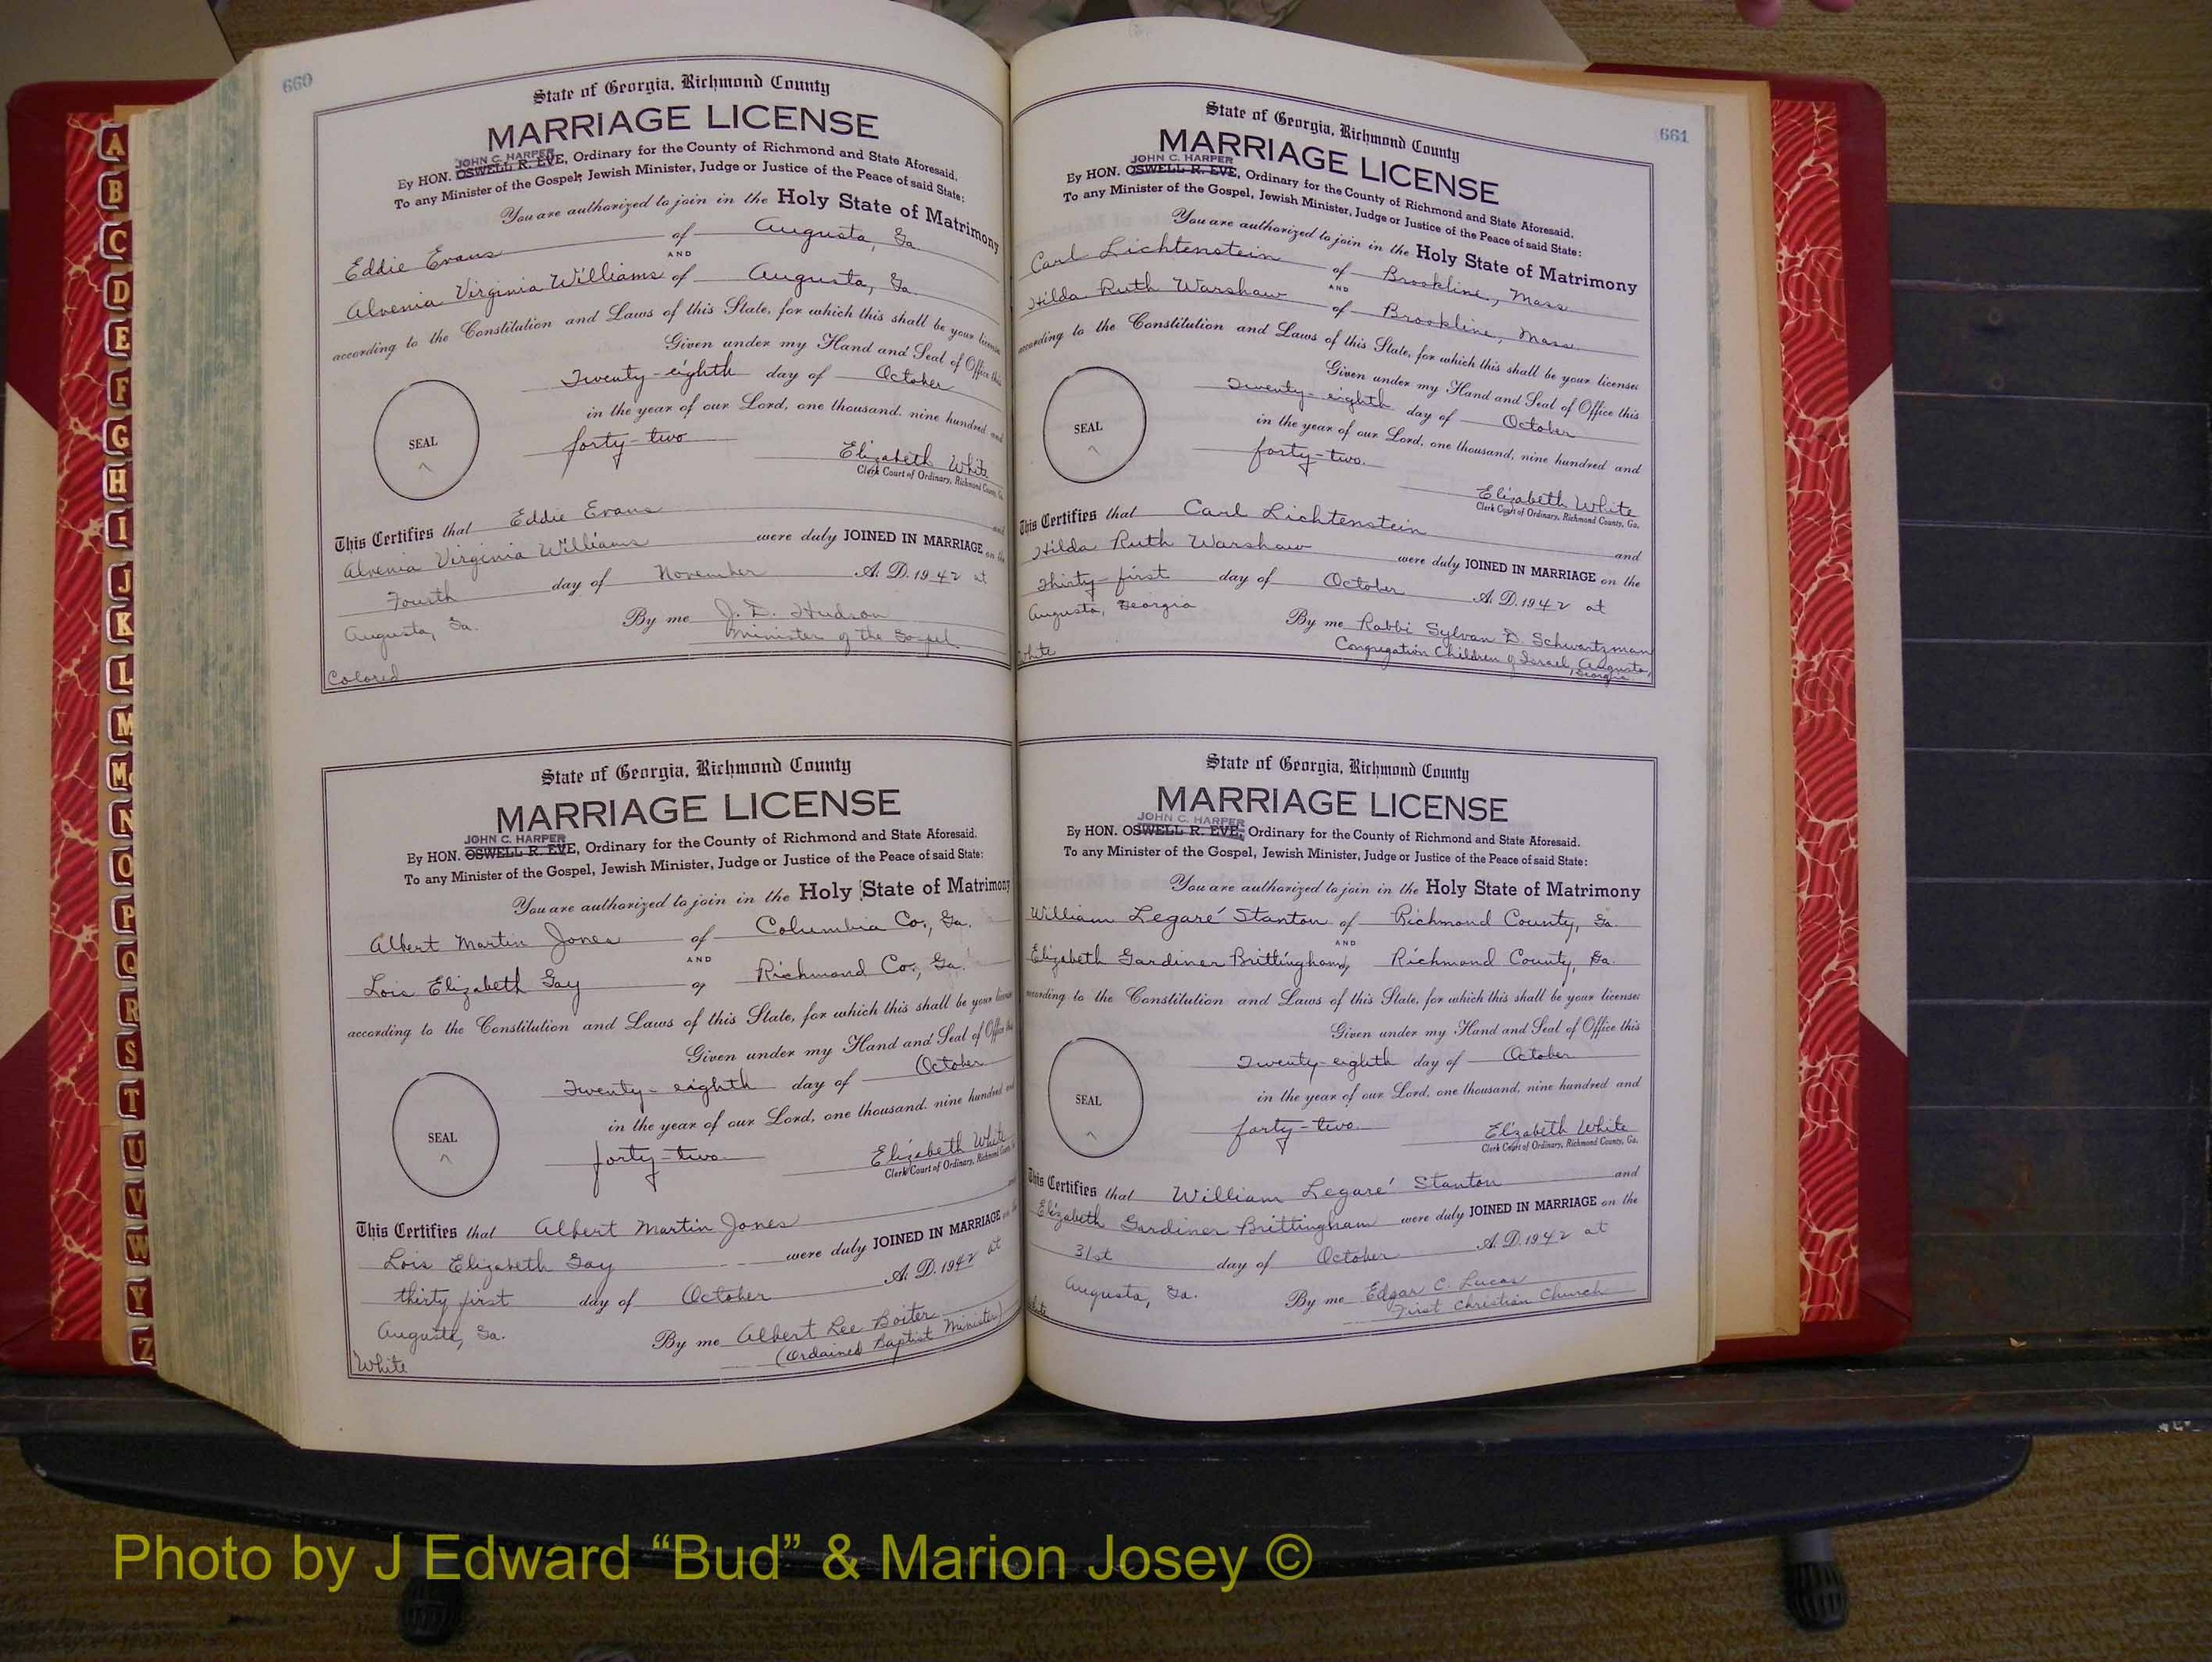 660
State of Georgia, Richmond County
MARRIAGE LICENSE
JOHN C. HARPER
By HON. OSWELL R. EVE, Ordinary for the County of Richmond and State Aforesaid.
To any Minister of the Gospel, Jewish Minister, Judge or Justice of the Peace of said State:
You are authorized to join in the Holy State of Matrimony
Eddie Evans of Augusta, Ga.
AND
Alvenia Virginia Williams of Augusta, Ga.
according to the Constitution and Laws of this State, for which this shall be your license
Given under my Hand and Seal of Office this
Twenty-eighth day of October
in the year of our Lord, one thousand, nine hundred and
SEAL
forty-two
Elizabeth White
Clerk Court of Ordinary, Richmond County, Ga.
This Certifies that Eddie Evans and
Alvenia Virginia Williams were duly JOINED IN MARRIAGE on the
Fourth day of November A. D. 1942 at
Augusta, Ga. By me J. D. Hudson
Minister of the Gospel
Colored
State of Georgia, Richmond County
MARRIAGE LICENSE
JOHN C. HARPER
By HON. OSWELL R. EVE, Ordinary for the County of Richmond and State Aforesaid.
To any Minister of the Gospel, Jewish Minister, Judge or Justice of the Peace of said State:
You are authorized to join in the Holy State of Matrimony
Albert Martin Jones of Columbia Co., Ga.
AND
Lois Elizabeth Gay of Richmond Co., Ga.
according to the Constitution and Laws of this State, for which this shall be your license
Given under my Hand and Seal of Office this
Twenty-eighth day of October
in the year of our Lord, one thousand, nine hundred and
SEAL
forty-two
Elizabeth White
Clerk Court of Ordinary, Richmond County, Ga.
This Certifies that Albert Martin Jones and
Lois Elizabeth Gay were duly JOINED IN MARRIAGE on the
thirty first day of October A. D. 1942 at
Augusta, Ga. By me Albert Lee Boiter
(Ordained Baptist Minister)
White
661
State of Georgia, Richmond County
MARRIAGE LICENSE
JOHN C. HARPER
By HON. OSWELL R. EVE, Ordinary for the County of Richmond and State Aforesaid.
To any Minister of the Gospel, Jewish Minister, Judge or Justice of the Peace of said State:
You are authorized to join in the Holy State of Matrimony
Carl Lichtenstein of Brookline, Mass
AND
Hilda Ruth Warshaw of Brookline, Mass.
according to the Constitution and Laws of this State, for which this shall be your license:
Given under my Hand and Seal of Office this
Twenty-eighth day of October
in the year of our Lord, one thousand, nine hundred and
SEAL
forty-two.
Elizabeth White
Clerk Court of Ordinary, Richmond County, Ga.
This Certifies that Carl Lichtenstein and
Hilda Ruth Warshaw were duly JOINED IN MARRIAGE on the
Thirty-first day of October A. D. 1942 at
Augusta, Georgia By me Rabbi Sylvan D. Schwartzman
Congregation Children of Israel, Augusta,
Georgia
White
State of Georgia, Richmond County
MARRIAGE LICENSE
JOHN C. HARPER
By HON. OSWELL R. EVE, Ordinary for the County of Richmond and State Aforesaid.
To any Minister of the Gospel, Jewish Minister, Judge or Justice of the Peace of said State:
You are authorized to join in the Holy State of Matrimony
William Legaré Stanton of Richmond County, Ga.
AND
Elizabeth Gardiner Brittingham of Richmond County, Ga.
according to the Constitution and Laws of this State, for which this shall be your license:
Given under my Hand and Seal of Office this
Twenty-eighth day of October
in the year of our Lord, one thousand, nine hundred and
SEAL
forty-two.
Elizabeth White
Clerk Court of Ordinary, Richmond County, Ga.
This Certifies that William Legaré Stanton and
Elizabeth Gardiner Brittingham were duly JOINED IN MARRIAGE on the
31st day of October A. D. 1942 at
Augusta, Ga. By me Edgar C. Lucas
First Christian Church
White
A
B
C
D
E
F
G
H
I
J
K
L
M
Mc
N
O
P
Q
R
S
T
U
V
W
Y
Z
Photo by J Edward “Bud” & Marion Josey ©